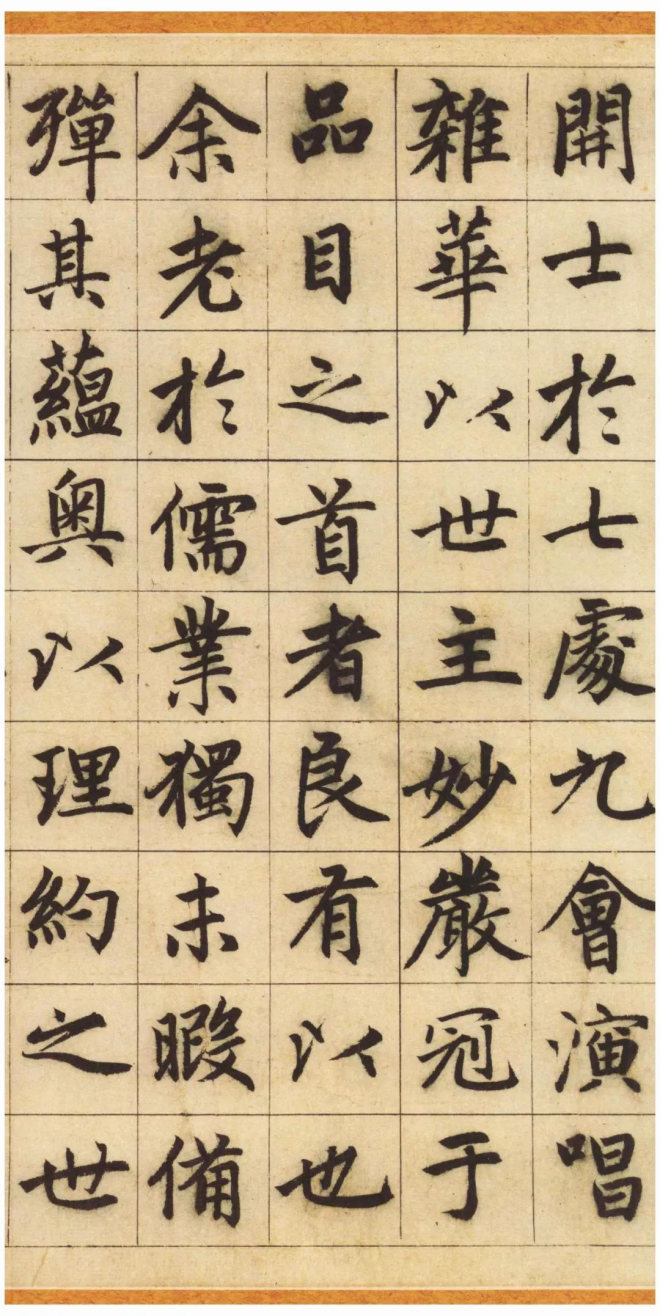 開士於七處九會演唱
雜華以世主妙嚴冠于
品目之首者良有以也
余老於儒業獨未暇備
彈其蘊奥以理約之世